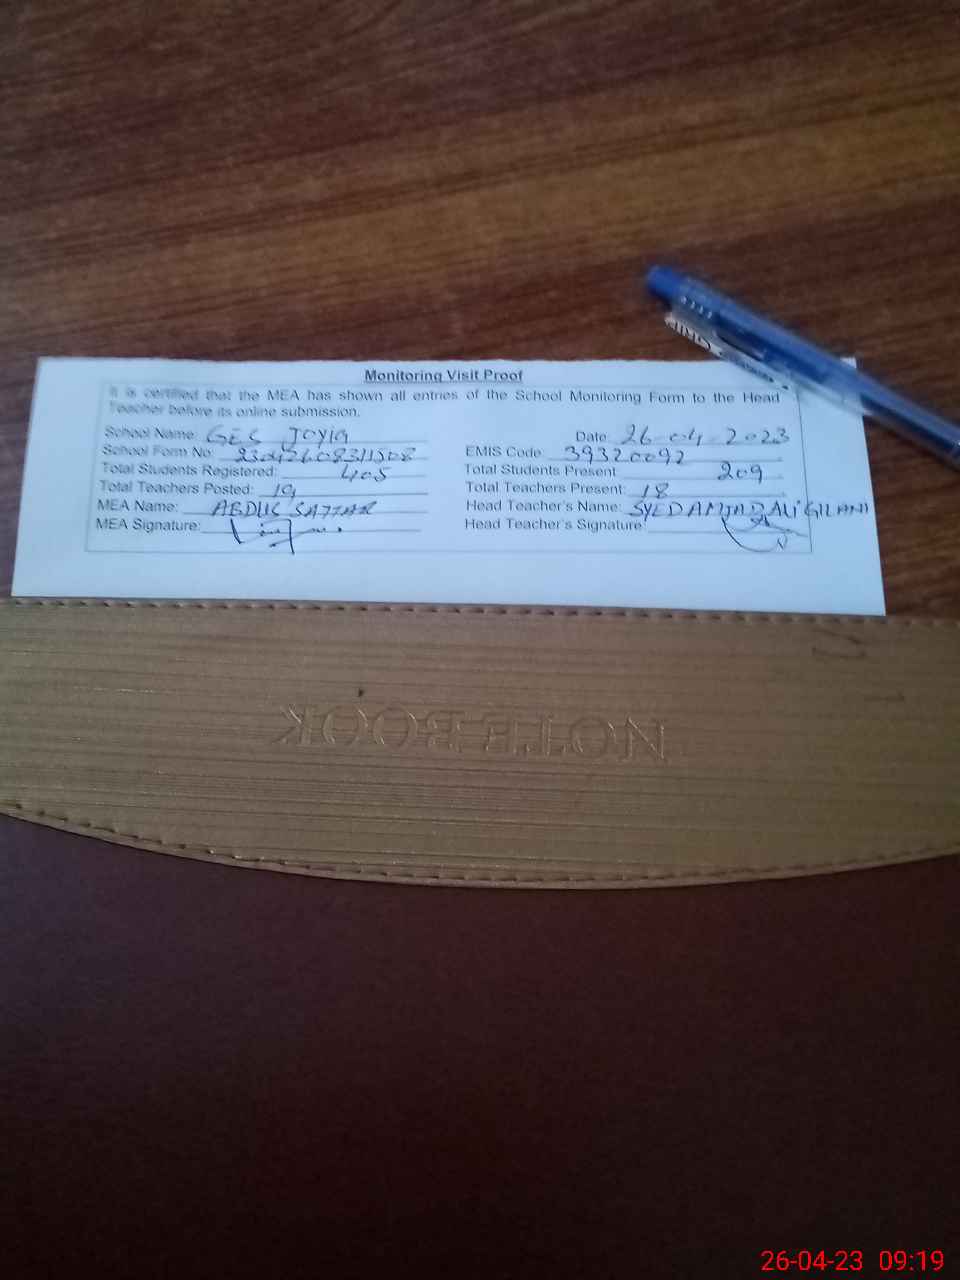 Monitoring Visit Proof
It is certified that the MEA has shown all entries of the School Monitoring Form to the Head
Teacher before its online submission.
School Name: GES JOYIA Date 26-04-2023
School Form No: 23042608311508 EMIS Code: 39320092
Total Students Registered: 405 Total Students Present: 209
Total Teachers Posted: 19 Total Teachers Present: 18
MEA Name: ABDUS SATTAR Head Teacher's Name: SYED AMJAD ALI GILANI
MEA Signature: Head Teacher's Signature:
NOTE BOOK
26-04-23 09:19